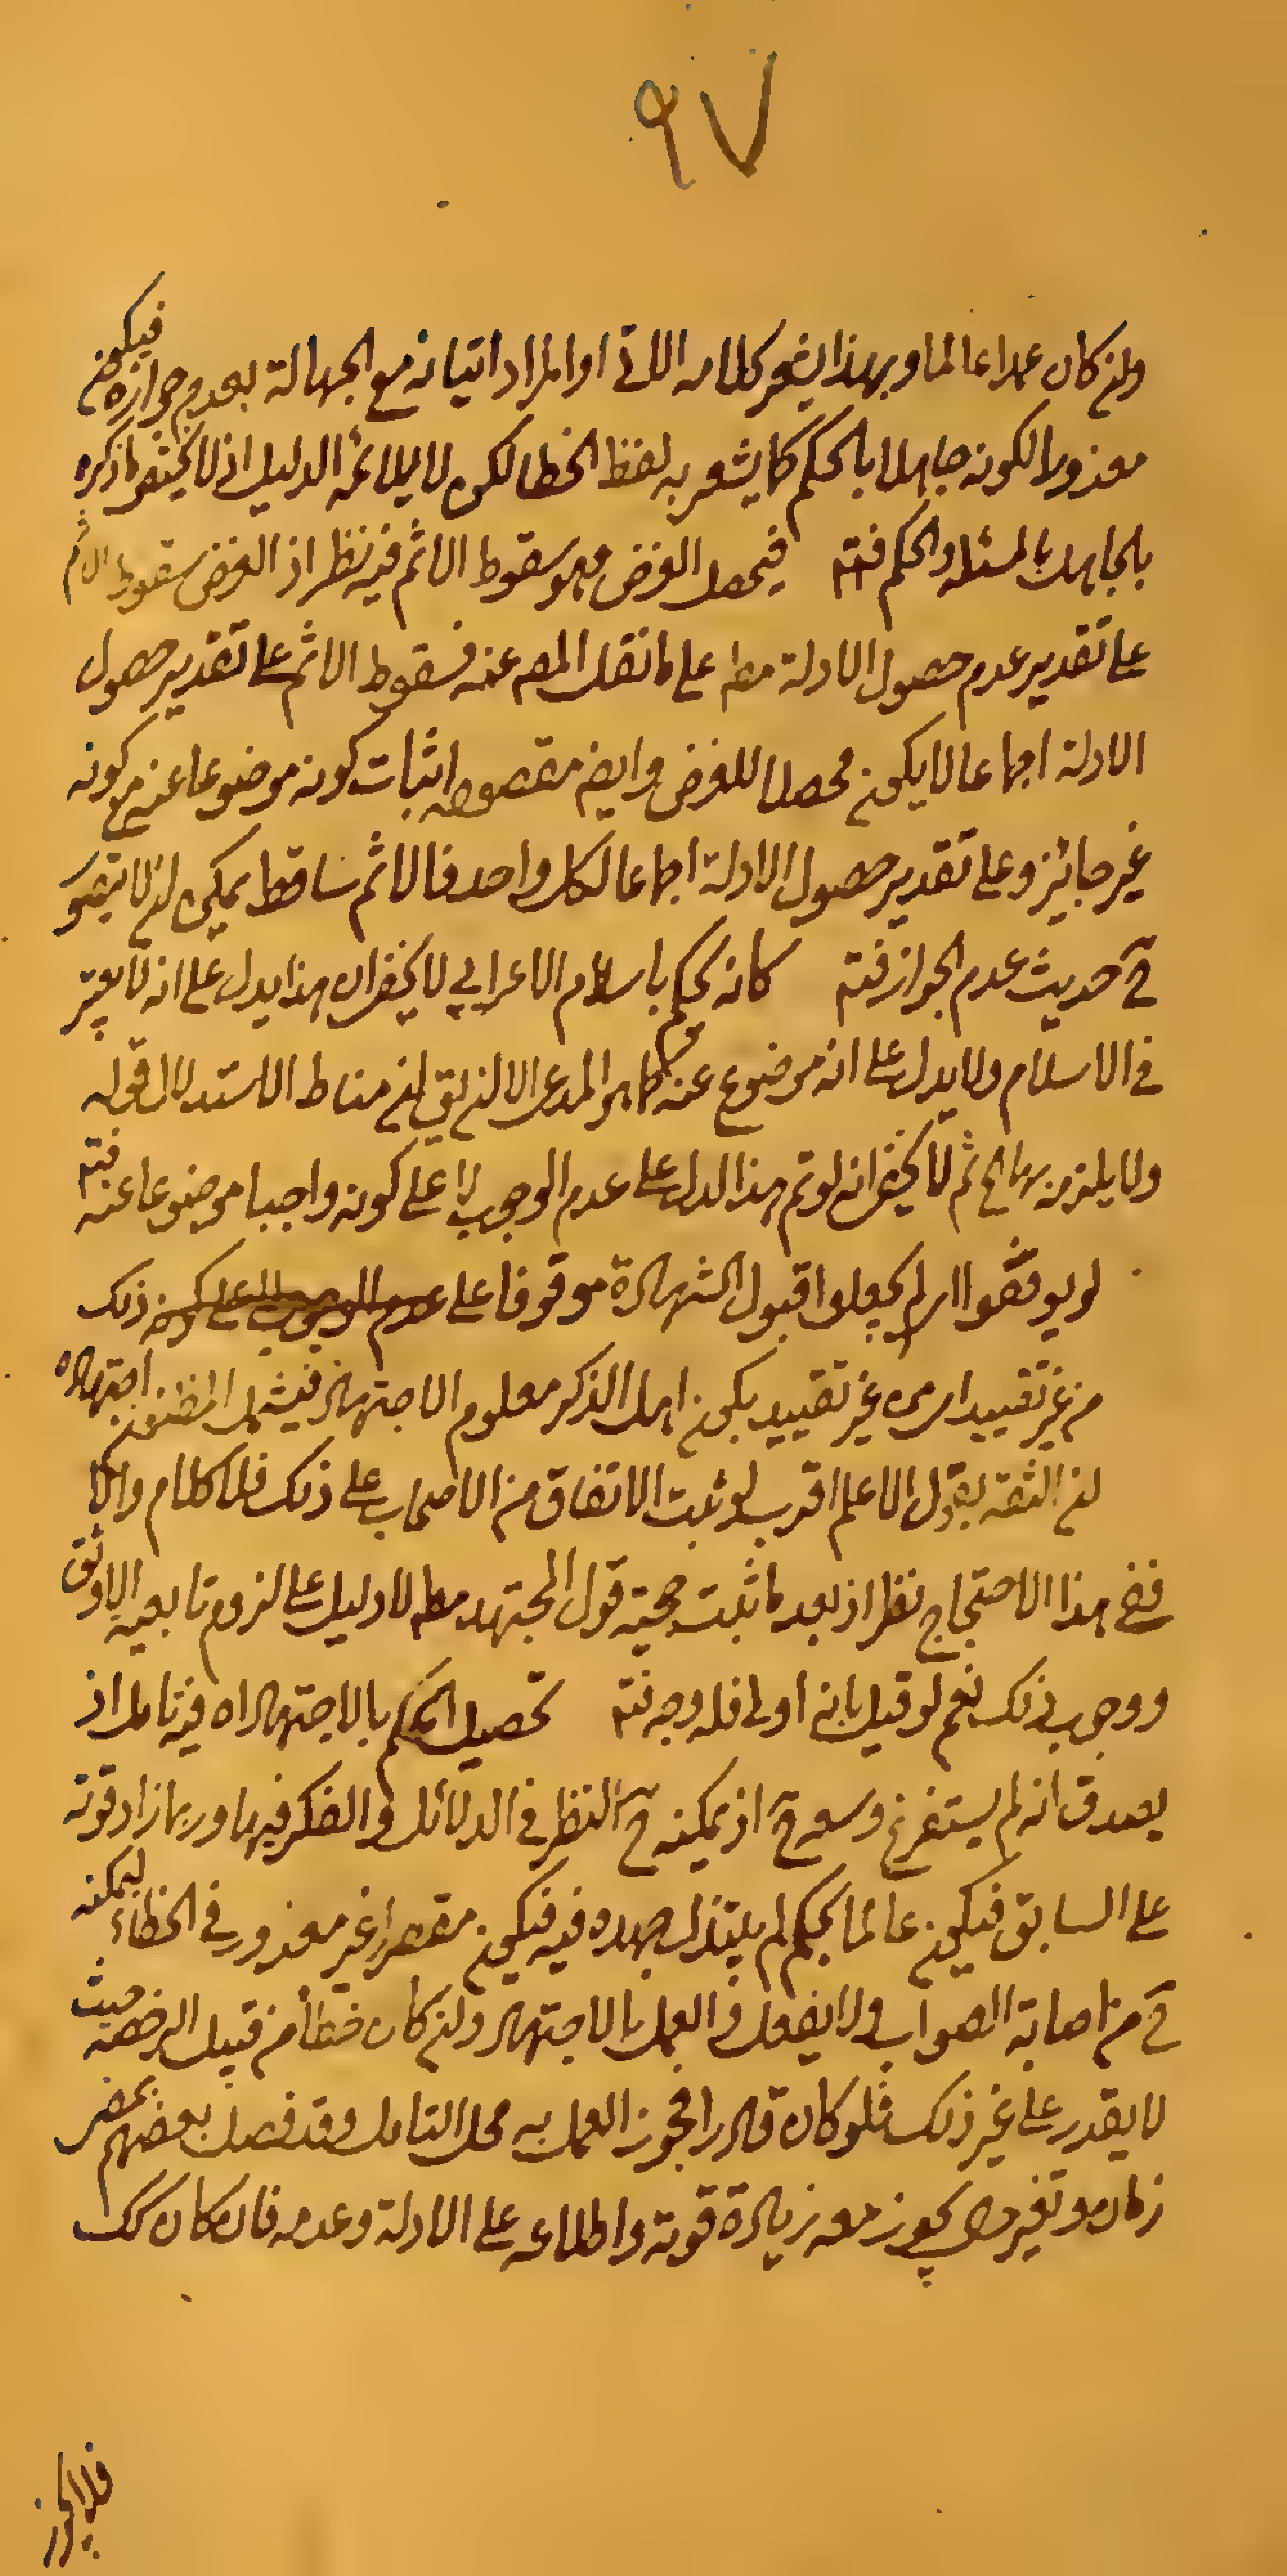 ٩٧
وان كان عمدا عالما وبهذا يشعر كلامه الاتي او المراد اتيانه مع الجهالة بعدم جوازه فيكون ح
معذورا لكونه جاهلا بالحكم كما يشعر به لفظ الخطا لكن لا يلائمه الدليل اذ لا يختص ما ذكره
بالجاهل بالمسئله والحكم فتم فيحصل الغرض وهو سقوط الاثم فيه نظر اذ الغرض سقوط الاثم
على تقدير عدم حصول الادلة مط على ما نقل المص عنه فسقوط الاثم على تقدير حصول
الادلة اجماعا لا يكون محصلا للغرض وايض مقصوده اثبات كونه موضوعا عنهم مع كونه
غير جائز وعلى تقدير حصول الادلة اجماعا لكل واحد فالاثم ساقط يمكن ان لا يتصور
ح حديث عدم الجواز فتم كانه يحكم باسلام الاعرابي لا يخفى ان هذا يدل على انه لا يعتبر
في الاسلام ولا يدل على انه موضوع عنه كما هو المدعى الا ان يق ان مناط الاستدلال قوله
ولا يلزمه بها الخ ثم لا يخفى انه لو تم هذا لدل على عدم الوجوب لا على كونه واجبا موضوعا عنه فتم
لو يوقفوا اي لم يجعلوا قبول الشهادة موقوفا على ذلك
من غير تقييد اي من غير تقييد بكون اهل الذكر معلوم الاجتهاد فيشمل المظنون اجتهاده
لان الثقة بقول الاعلم اقرب لو ثبت الاتفاق من الاصحاب على ذلك فلا كلام والا
ففي هذا الاحتجاج نظر اذ بعد ما ثبت حجية قول المجتهد مط لا دليل على لزوم تابعيه الاوثق
ووجوب ذلك نعم لو قيل بانه اولى فله وجه فتم تحصيل الحكم بالاجتهاد اه فيه تامل اذ
يصدق انه لم يستفرغ وسعه ح اذ يمكنه ح النظر في الدلائل والفكر فيها وربما زاد قوته
على السابق فيكون عالما بحكم لم يبتذل جهده فيه فيكون مقصرا غير معذور في الخطاء ليمكنه
ح من اصابة الصواب ولا يفعل والعمل بالاجتهاد وان كان خطأ من قبيل الرخصة حيث
لا يقدر على غير ذلك فلو كان قادرا فجوز العمل به محل التامل وقد فصل بعضهم بمضي
زمان وتغير حال يجوز معه زيادة قوته واطلاعه على الادلة وعدمه فان كان كك
فلا يجوز